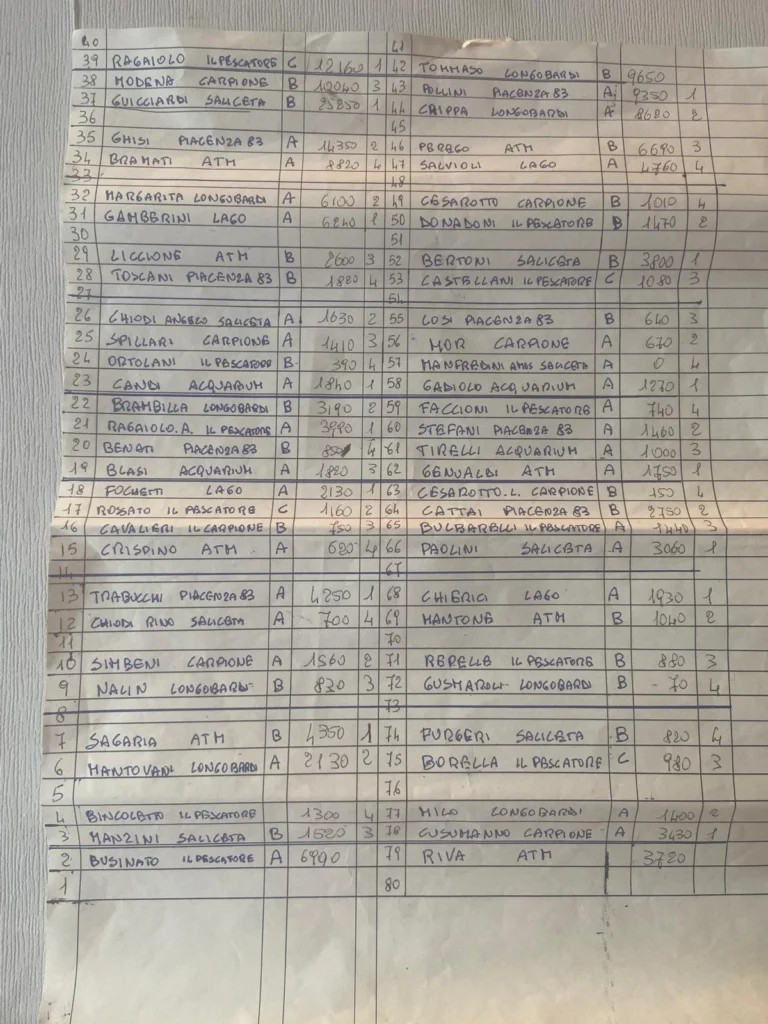 40 41
39 RAGAIOLO IL PESCATORE C 12160 1 42 TOMMASO LONGOBARDI B 9650
38 MODENA CARPIONE B 3 43 POLLINI PIACENZA 83 A 9350 1
37 GUICCIARDI SALICETA B 1 44 CRIPPA LONGOBARDI A 8680 2
36 45
35 GHISI PIACENZA 83 A 14350 2 46 PEREGO ATM B 6690 3
34 BRAMATI ATM A 8820 4 47 SALVIOLI LAGO A 4760 4
33 48
32 MARGARITA LONGOBARDI A 6100 2 49 CESAROTTO CARPIONE B 1010 4
31 GAMBERINI LAGO A 6240 1 50 DONADONI IL PESCATORE B 1470 2
30 51
29 LICCIONE ATM B 2600 3 52 BERTONI SALICETA B 3800 1
28 TOSCANI PIACENZA 83 B 1820 4 53 CASTELLANI IL PESCATORE C 1080 3
27 54
26 CHIODI ANGELO SALICETA A 1630 2 55 LOSI PIACENZA 83 B 640 3
25 SPILLARI CARPIONE A 1410 3 56 MOR CARPIONE A 670 2
24 ORTOLANI IL PESCATORE B 390 4 57 MANFREDINI AMOS SALICETA A 0 4
23 CANDI ACQUARIUM A 1840 1 58 GADIOLO ACQUARIUM A 1270 1
22 BRAMBILLA LONGOBARDI B 3190 2 59 FACCIONI IL PESCATORE A 740 4
21 RAGAIOLO.A. IL PESCATORE A 3990 1 60 STEFANI PIACENZA 83 A 1460 2
20 BENATI PIACENZA 83 B 4 61 TIRELLI ACQUARIUM A 1000 3
19 BLASI ACQUARIUM A 1820 3 62 GENUALDI ATM A 1750 1
18 FOCHETTI LAGO A 2130 1 63 CESAROTTO.L. CARPIONE B 150 4
17 ROSSATO IL PESCATORE C 1160 2 64 CATTAI PIACENZA 83 B 2750 2
16 CAVALIERI IL CARPIONE B 750 3 65 BULBARELLI IL PESCATORE A 1440 3
15 CRISPINO ATM A 620 4 66 PAOLINI SALICETA A 3060 1
14 67
13 TRABUCCHI PIACENZA 83 A 4250 1 68 CHIERICI LAGO A 1930 1
12 CHIODI RINO SALICETA A 700 4 69 MANTONE ATM B 1040 2
11 70
10 SIMBENI CARPIONE A 1560 2 71 REPELLE IL PESCATORE B 880 3
9 NALIN LONGOBARDI B 830 3 72 GUSMAROLI LONGOBARDI B - 70 4
8 73
7 SAGARIA ATM B 4350 1 74 FURGERI SALICETA B 820 4
6 MANTOVANI LONGOBARDI A 2130 2 75 BORELLA IL PESCATORE C 980 3
5 76
4 BINCOLETTO IL PESCATORE 1300 4 77 MILO LONGOBARDI A 1400 2
3 MANZINI SALICETA B 1520 3 78 CUSUMANNO CARPIONE A 3430 1
2 BUSINATO IL PESCATORE A 6990 79 RIVA ATM 3720
1 80